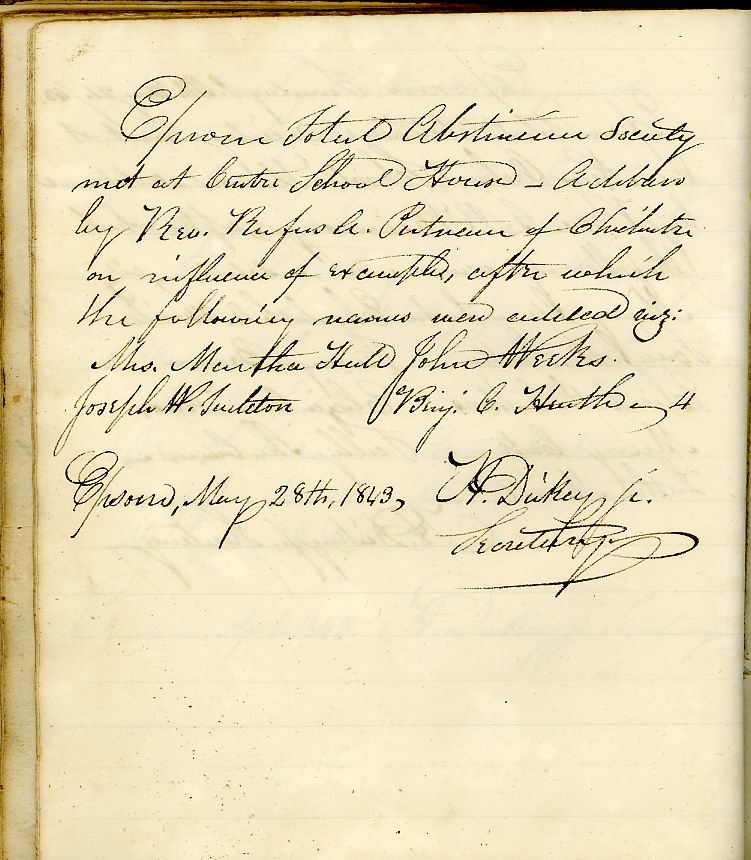 Epsom Total Abstinence Society
met at Centre School House – Address
by Rev. Rufus A. Putnam of Chichester
on influence of example, after which
the following names were added viz:
Mrs. Martha Hall John Weeks.
Joseph W. Benj. C. Heath – 4
Epsom, May 28th, 1843, H. Dickey, jr.
Secretary